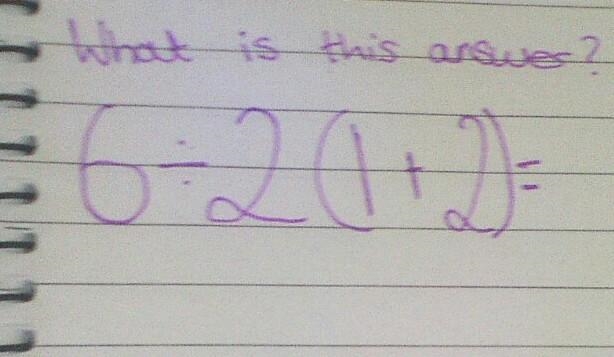 What is this answer?
6÷2(1+2)=